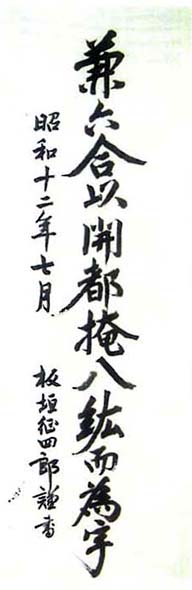 兼六合以開都掩八紘而為宇
昭和十二年七月
板垣征四郎謹書